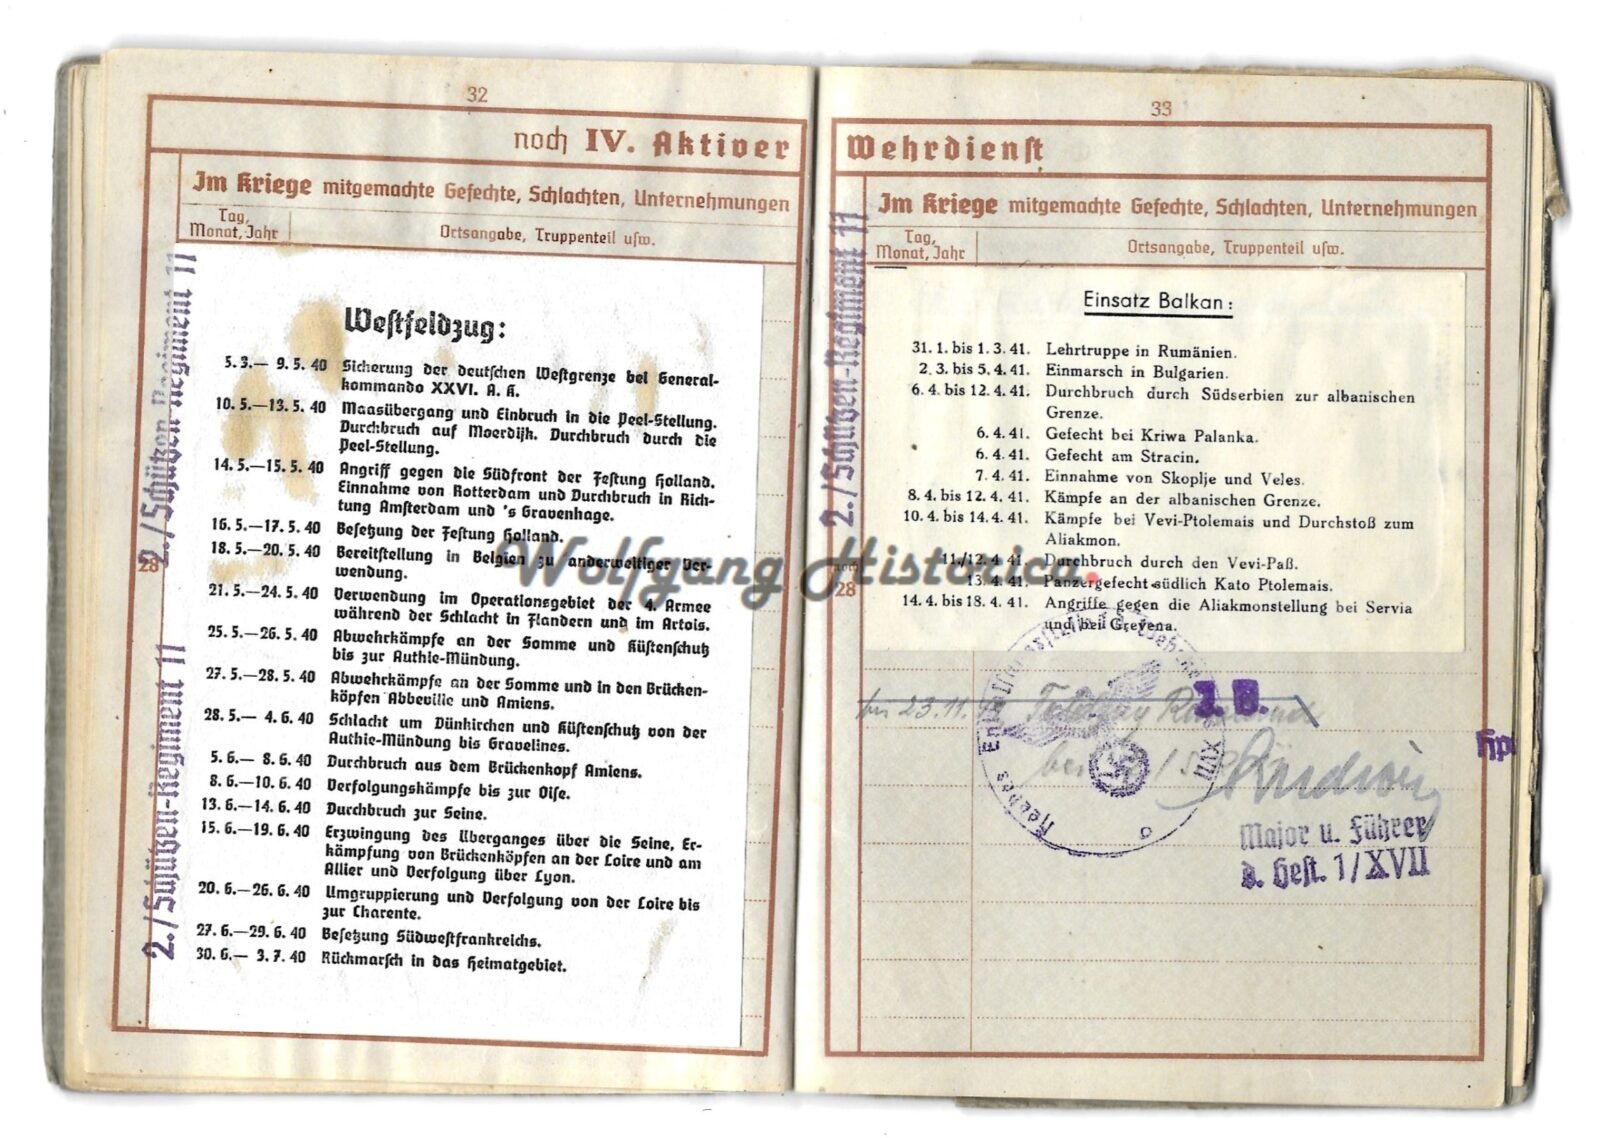 32
noch IV. Aktiver
Im Kriege mitgemachte Gefechte, Schlachten, Unternehmungen
Tag,
Monat, Jahr
Ortsangabe, Truppenteil usw.
2./Schützen-Regiment 11
28
2./Schützen-Regiment 11
Westfeldzug:
5.3.— 9.5.40 Sicherung der deutschen Westgrenze bei General-
kommando XXVI. A. K.
10.5.—13.5.40 Maasübergang und Einbruch in die Peel-Stellung.
Durchbruch auf Moerdijk. Durchbruch durch die
Peel-Stellung.
14.5.—15.5.40 Angriff gegen die Südfront der Festung Holland.
Einnahme von Rotterdam und Durchbruch in Rich-
tung Amsterdam und 's Gravenhage.
16.5.—17.5.40 Besetzung der Festung Holland.
18.5.—20.5.40 Bereitstellung in Belgien zu anderweitiger Ver-
wendung.
21.5.—24.5.40 Verwendung im Operationsgebiet der 4. Armee
während der Schlacht in Flandern und im Artois.
25.5.—26.5.40 Abwehrkämpfe an der Somme und Küstenschutz
bis zur Authie-Mündung.
27.5.—28.5.40 Abwehrkämpfe an der Somme und in den Brücken-
köpfen Abbeville und Amiens.
28.5.— 4.6.40 Schlacht um Dünkirchen und Küstenschutz von der
Authie-Mündung bis Gravelines.
5.6.— 8.6.40 Durchbruch aus dem Brückenkopf Amiens.
8.6.—10.6.40 Verfolgungskämpfe bis zur Oise.
13.6.—14.6.40 Durchbruch zur Seine.
15.6.—19.6.40 Erzwingung des Überganges über die Seine, Er-
kämpfung von Brückenköpfen an der Loire und am
Allier und Verfolgung über Lyon.
20.6.—26.6.40 Umgruppierung und Verfolgung von der Loire bis
zur Charente.
27.6.—29.6.40 Besetzung Südwestfrankreichs.
30.6.— 3.7.40 Rückmarsch in das Heimatgebiet.
Wolfgang Historica.
33
Wehrdienst
Im Kriege mitgemachte Gefechte, Schlachten, Unternehmungen
Tag,
Monat, Jahr
Ortsangabe, Truppenteil usw.
2./Schützen-Regiment 11
noch
28
Einsatz Balkan:
31. 1. bis 1. 3. 41. Lehrtruppe in Rumänien.
2. 3. bis 5. 4. 41. Einmarsch in Bulgarien.
6. 4. bis 12. 4. 41. Durchbruch durch Südserbien zur albanischen
Grenze.
6. 4. 41. Gefecht bei Kriwa Palanka.
6. 4. 41. Gefecht am Stracin.
7. 4. 41. Einnahme von Skoplje und Veles.
8. 4. bis 12. 4. 41. Kämpfe an der albanischen Grenze.
10. 4. bis 14. 4. 41. Kämpfe bei Vevi-Ptolemais und Durchstoß zum
Aliakmon.
11./12. 4 41. Durchbruch durch den Vevi-Paß.
13. 4. 41. Panzergefecht südlich Kato Ptolemais.
14. 4. bis 18. 4. 41. Angriffe gegen die Aliakmonstellung bei Servia
und bei Grevena.
bis 23.11.
J. B.
Heeres
XVII
Major u. Führer
d. Hest. 1/XVII